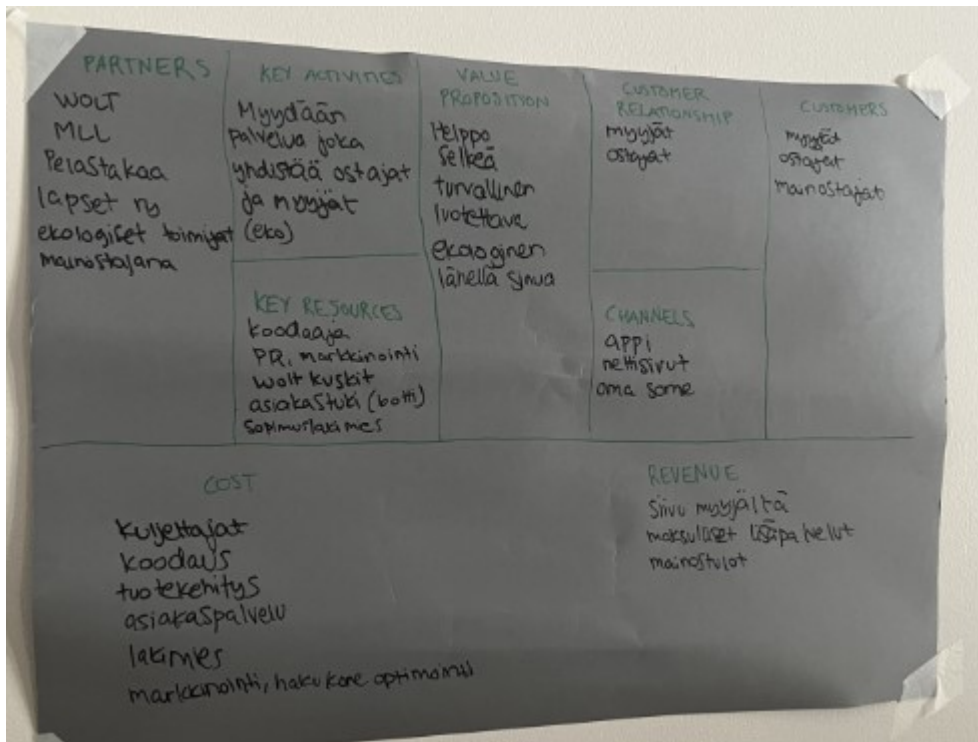 PARTNERS
WOLT
MLL
Pelastakaa
lapset ry
ekologiset toimijat
mainostajana
KEY ACTIVITIES
Myydään
palvelua joka
yhdistää ostajat
ja myyjät
(eko)
KEY RESOURCES
koodaaja
PR, markkinointi
wolt kuskit
asiakastuki (botti)
sopimuslakimies
VALUE
PROPOSITION
Helppo
selkeä
turvallinen
luotettava
ekologinen
lähellä sinua
CUSTOMER
RELATIONSHIP
myyjät
ostajat
CHANNELS
appi
nettisivut
oma some
CUSTOMERS
myyjät
ostajat
mainostajat
COST
kuljettajat
koodaus
tuotekehitys
asiakaspalvelu
lakimies
markkinointi, hakukone optimointi
REVENUE
Siivu myyjältä
maksulliset lisäpalvelut
mainostulot